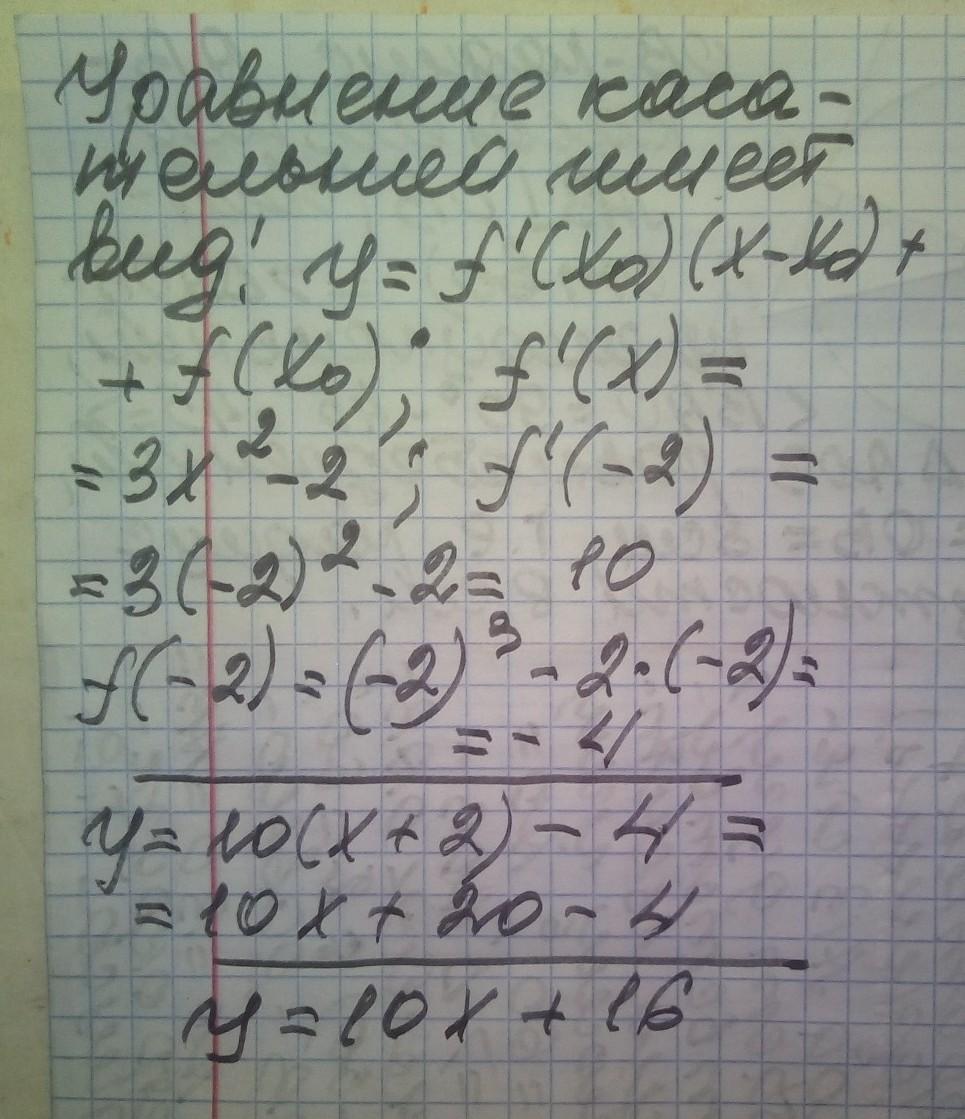 Уравнение каса-
тельной имеет
вид: y = f'(x₀)(x-x₀) +
+ f(x₀); f'(x) =
= 3x² - 2; f'(-2) =
= 3(-2)² - 2 = 10
f(-2) = (-2)³ - 2·(-2) =
= - 4
y = 10(x + 2) - 4 =
= 10x + 20 - 4
y = 10x + 16